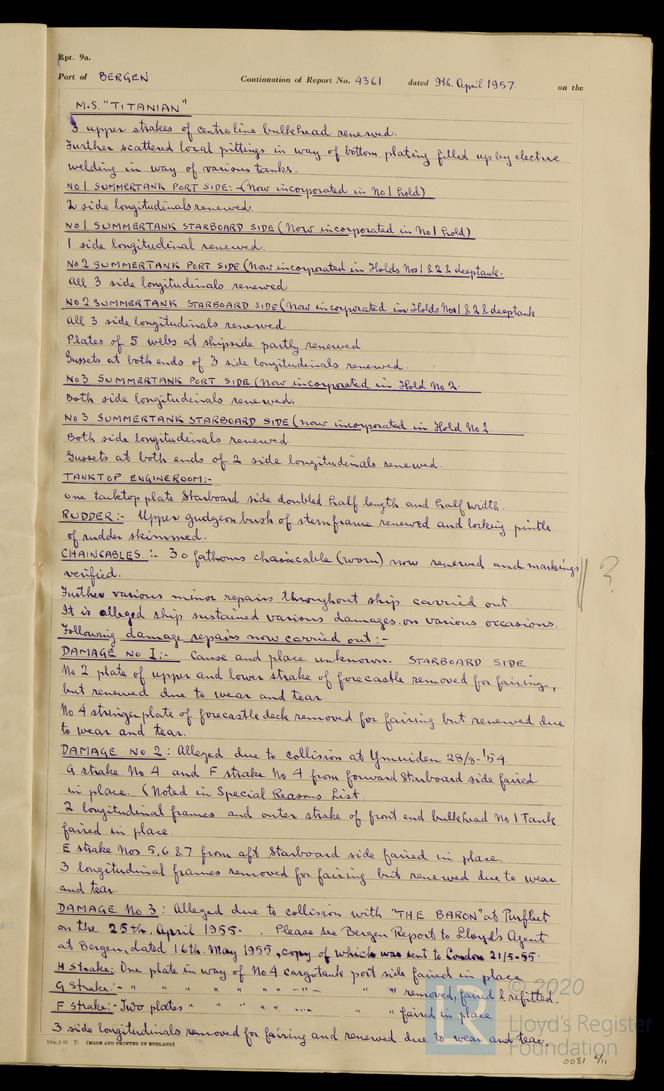 Rpt. 9a.
Port of BERGEN Continuation of Report No. 4361 dated 9th. April 1957. on the
M.S. "TITANIAN"
3 upper strakes of centreline bulkhead renewed.
Further scattered local pittings in way of bottom plating filled up by electric
welding in way of various tanks.
No 1 SUMMERTANK PORT SIDE:- (Now incorporated in No 1 hold)
2 side longitudinals renewed.
No 1 SUMMERTANK STARBOARD SIDE (Now incorporated in No 1 hold)
1 side longitudinal renewed.
No 2 SUMMERTANK PORT SIDE (Now incorporated in Holds Nos 1 & 2 & deeptank.
All 3 side longitudinals renewed
No 2 SUMMERTANK STARBOARD SIDE (Now incorporated in Holds Nos 1 & 2 & deeptank
All 3 side longitudinals renewed
Plates of 5 webs at shipside partly renewed
Gussets at both ends of 3 side longitudinals renewed.
No 3 SUMMERTANK PORT SIDE (Now incorporated in Hold No 2.
Both side longitudinals renewed.
No 3 SUMMERTANK STARBOARD SIDE (now incorporated in Hold No 2
Both side longitudinals renewed
Gussets at both ends of 2 side longitudinals renewed.
TANKTOP ENGINEROOM:-
One tanktop plate Starboard side doubled half length and half width.
RUDDER:- Upper gudgeon bush of sternframe renewed and locking pintle
of rudder skimmed.
CHAINCABLES:- 30 fathoms chaincable (worn) now renewed and markings
verified. ?
Further various minor repairs throughout ship carried out
It is alleged ship sustained various damages on various occasions.
Following damage repairs now carried out:-
DAMAGE No I:- Cause and place unknown. STARBOARD SIDE
No 2 plate of upper and lower strake of forecastle removed for fairing,
but renewed due to wear and tear
No 4 stringerplate of forecastle deck removed for fairing but renewed due
to wear and tear.
DAMAGE No 2: Alleged due to collision at Ymuiden 28/8-'54
G strake No 4 and F strake No 4 from forward Starboard side faired
in place. (Noted in Special Reasons List.
2 longitudinal frames and outer strake of front end bulkhead No 1 Tank
faired in place.
E strake Nos 5, 6 & 7 from aft Starboard side faired in place.
3 longitudinal frames removed for fairing but renewed due to wear
and tear.
DAMAGE No 3: Alleged due to collision with "THE BARON" at Purfleet
on the 25th. April 1955. Please see Bergen Report to Lloyd's Agent
at Bergen, dated 16th. May 1955, copy of which was sent to London 21/5-55.
H Strake: One plate in way of No 4 cargotank port side faired in place
G Strake:- " " " " " " -"- " " removed, faired & refitted.
F Strake:- Two plates " " " " " faired in place
3 side longitudinals removed for fairing and renewed due to wear and tear.
T. (MADE AND PRINTED IN ENGLAND)
0081
© 2020
Lloyd's Register
Foundation
LR